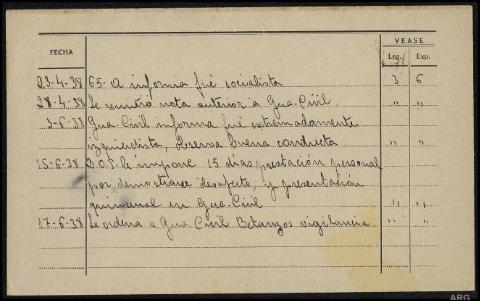 VEASE
FECHA Leg. Exp.
23-4-38 65-A informa fué socialista 3 6
28-4-38 Se remitió nota anterior a Gua. Civil " "
3-6-38 Gua. Civil informa fué extremadamente
izquierdista, observa buena conducta " "
15-6-38 D.O.P. le impone 15 días prestación personal
por demostrarse desafecto, y presentación
quincenal en Gua. Civil " "
17-6-38 Se ordena a Gua. Civil Betanzos vigilancia " "
ARG